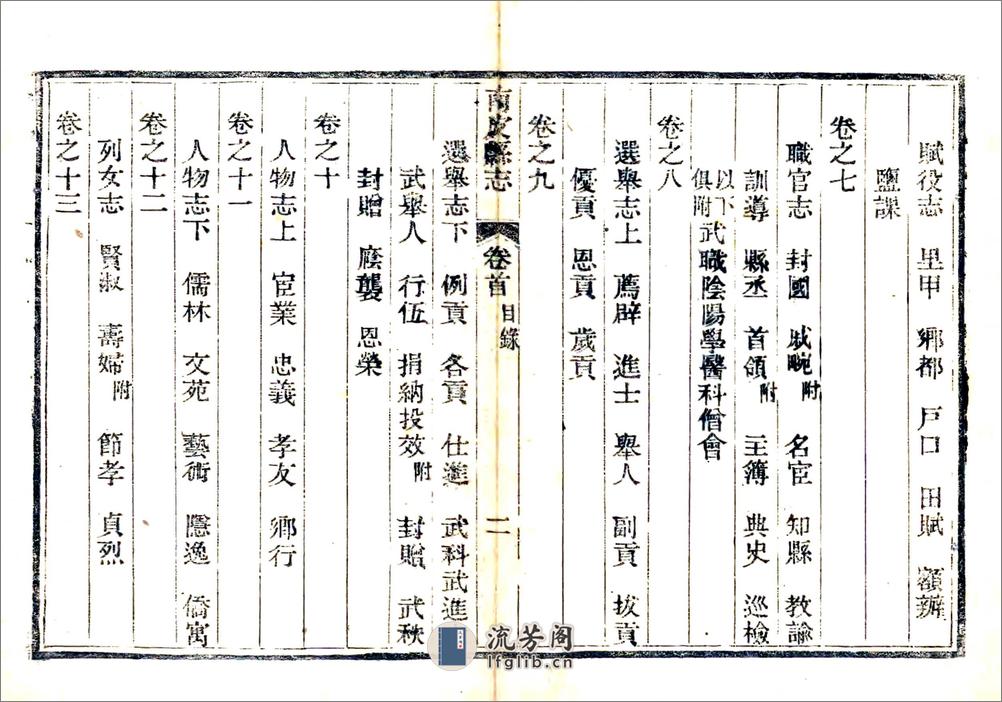 賦役志 里甲 鄉都 戶口 田賦 額辦
鹽課
卷之七
職官志 封國 戚畹附 名宦 知縣 教諭
訓導 縣丞 首領附 主簿 典史 巡檢
以下武職陰陽學醫科僧會
俱附
卷之八
選舉志上 薦辟 進士 舉人 副貢 拔貢
優貢 恩貢 歲貢
卷之九
南皮縣志 卷首 目錄 二
選舉志下 例貢 各貢 仕進 武科武進士
武舉人 行伍 捐納投效附 封贈 武秩
封贈 廕襲 恩榮
卷之十
人物志上 宦業 忠義 孝友 鄉行
卷之十一
人物志下 儒林 文苑 藝術 隱逸 僑寓
卷之十二
列女志 賢淑 壽婦附 節孝 貞烈
卷之十三
流芳阁
lfglib.cn